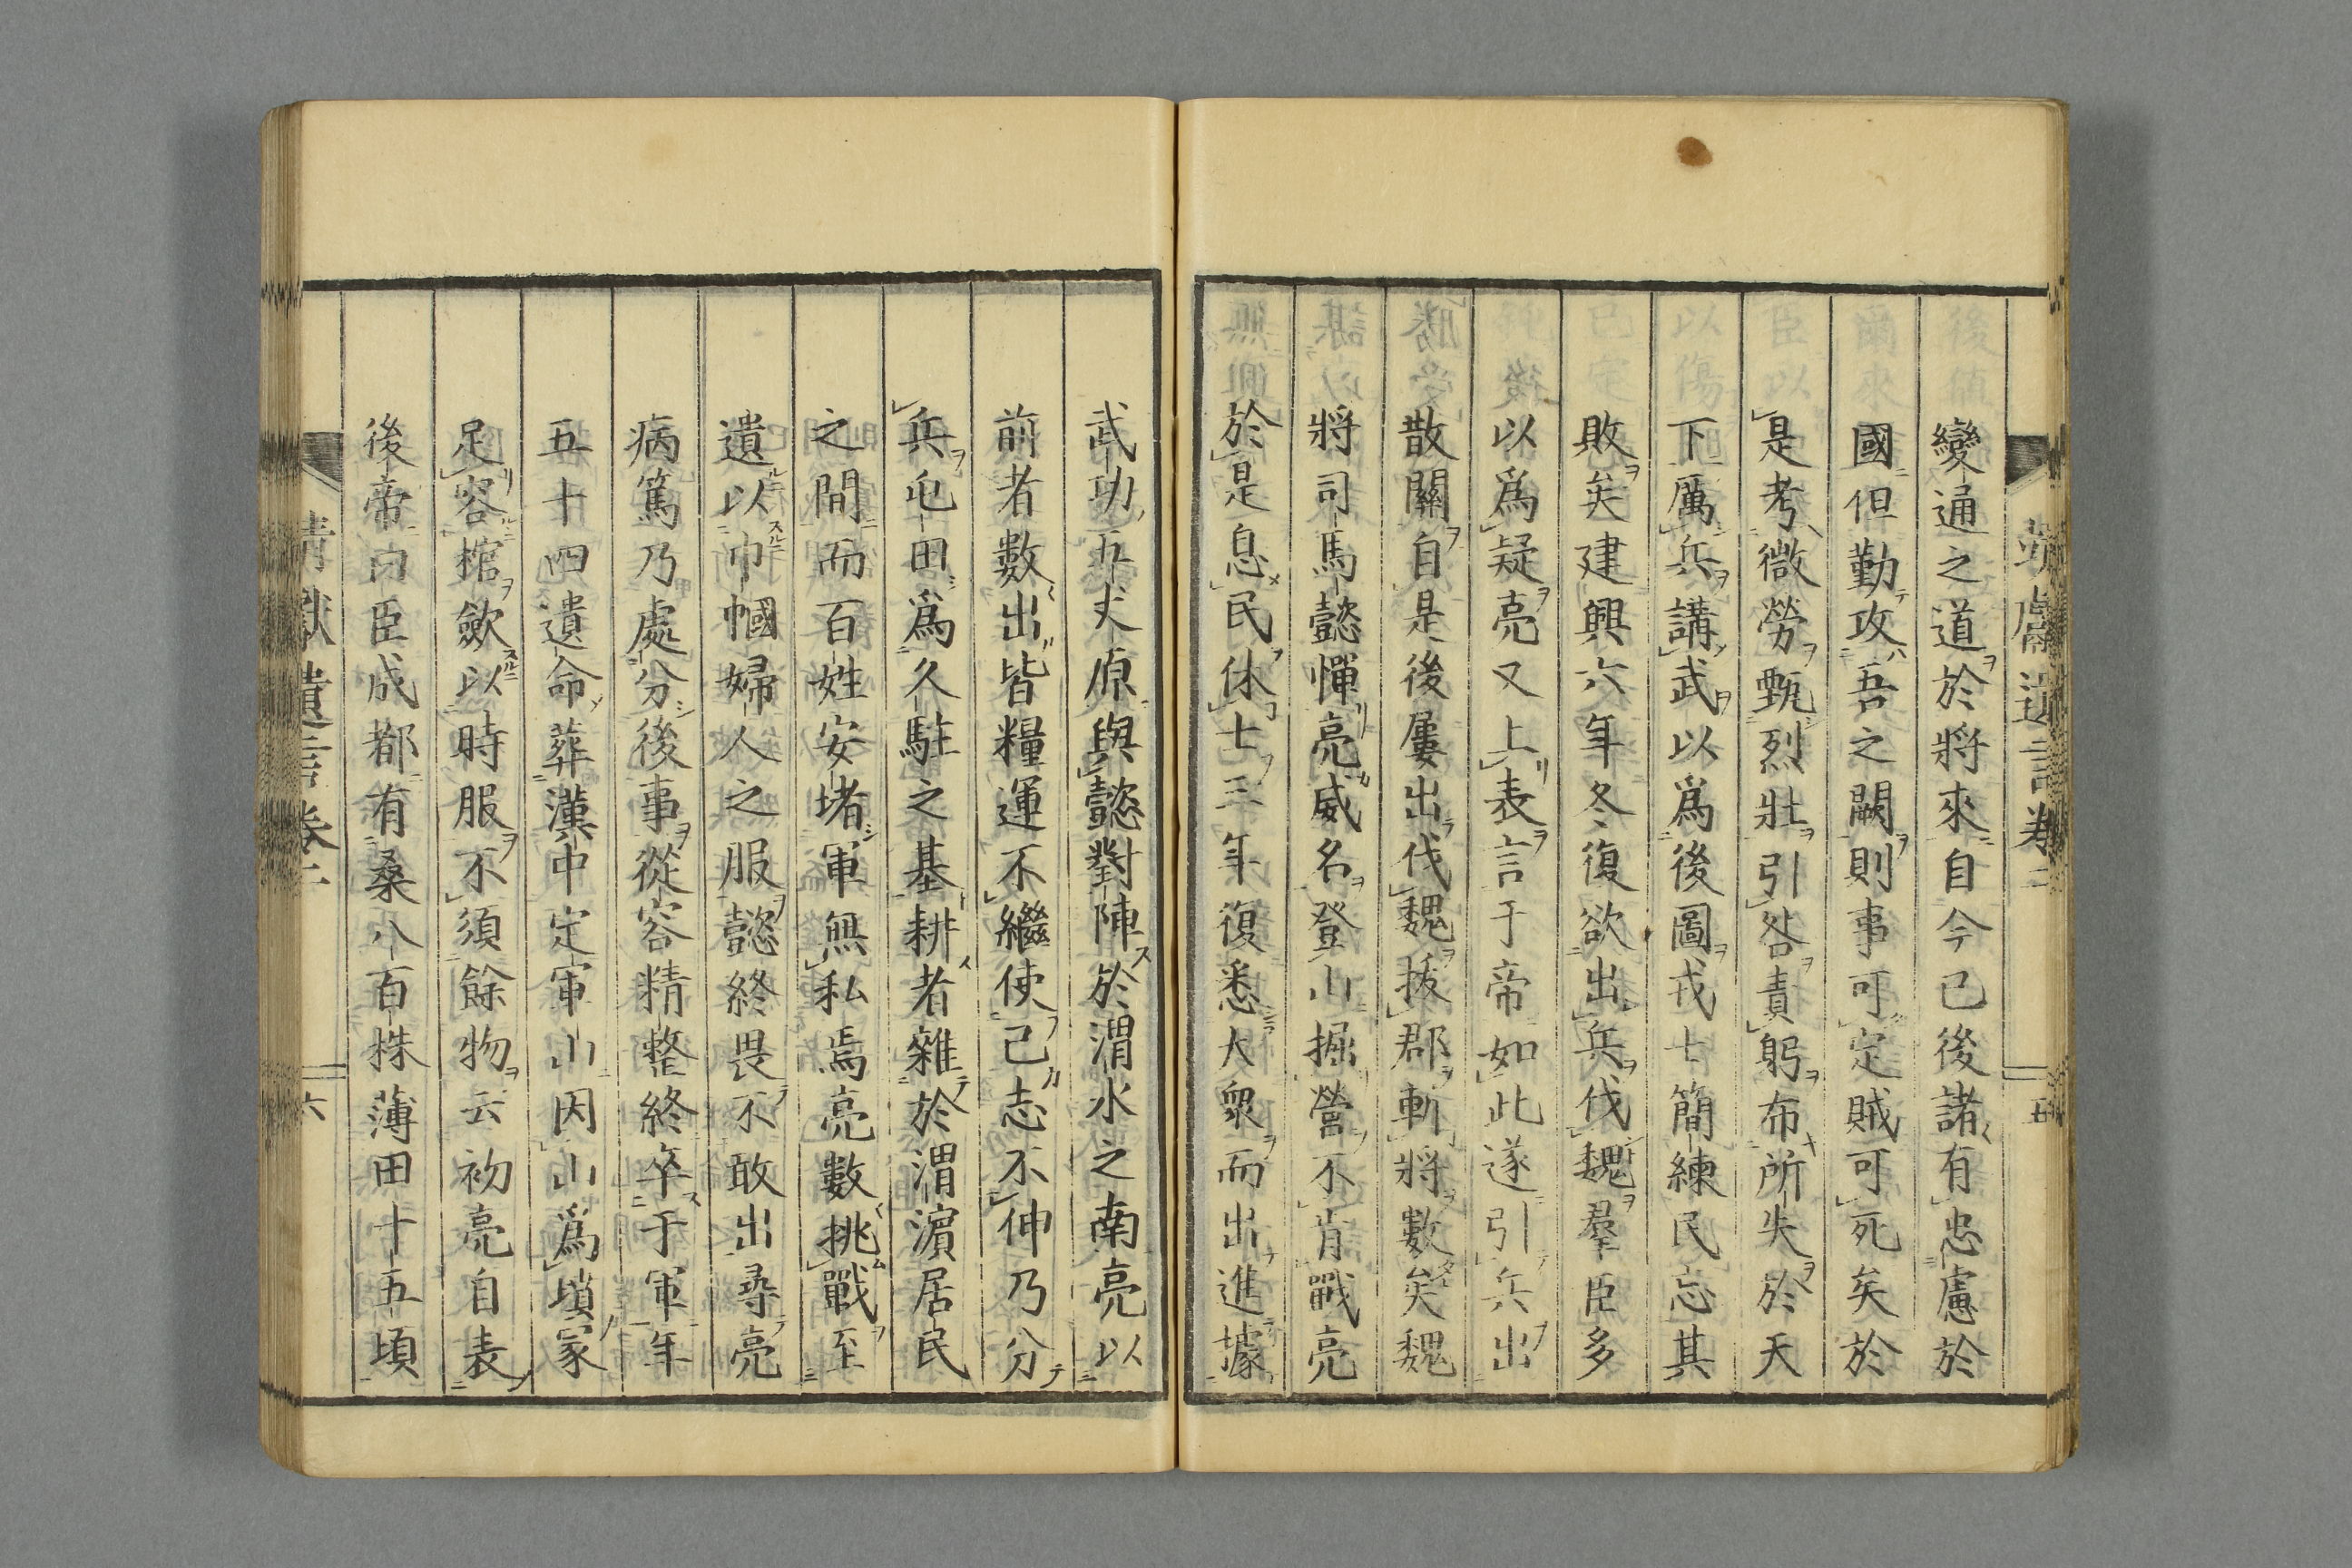 變通之道於將來自今已後諸有忠慮於
國但勤攻吾之闕則事可定賊可死矣於
是考微勞甄烈壯引咎責躬布所失於天
下厲兵講武以爲後圖戎士簡練民忘其
敗矣建興六年冬復欲出兵伐魏羣臣多
以爲疑亮又上表言于帝如此遂引兵出
散關自是後屢出伐魏拔郡斬將數矣魏
將司馬懿憚亮威名登山掘營不肯戰亮
於是息民休士三年復悉大衆而出進據
武功五丈原與懿對陣於渭水之南亮以
前者數出皆糧運不繼使己志不伸乃分
兵屯田爲久駐之基耕者雜於渭濵居民
之間而百姓安堵軍無私焉亮數挑戰至
遺以巾幗婦人之服懿終畏不敢出尋亮
病篤乃處分後事從容精整終卒于軍年
五十四遺命葬漢中定軍山因山爲墳冢
足容棺斂以時服不須餘物云初亮自表
後帝曰臣成都有桑八百株薄田十五頃
靖獻遺言卷二
六